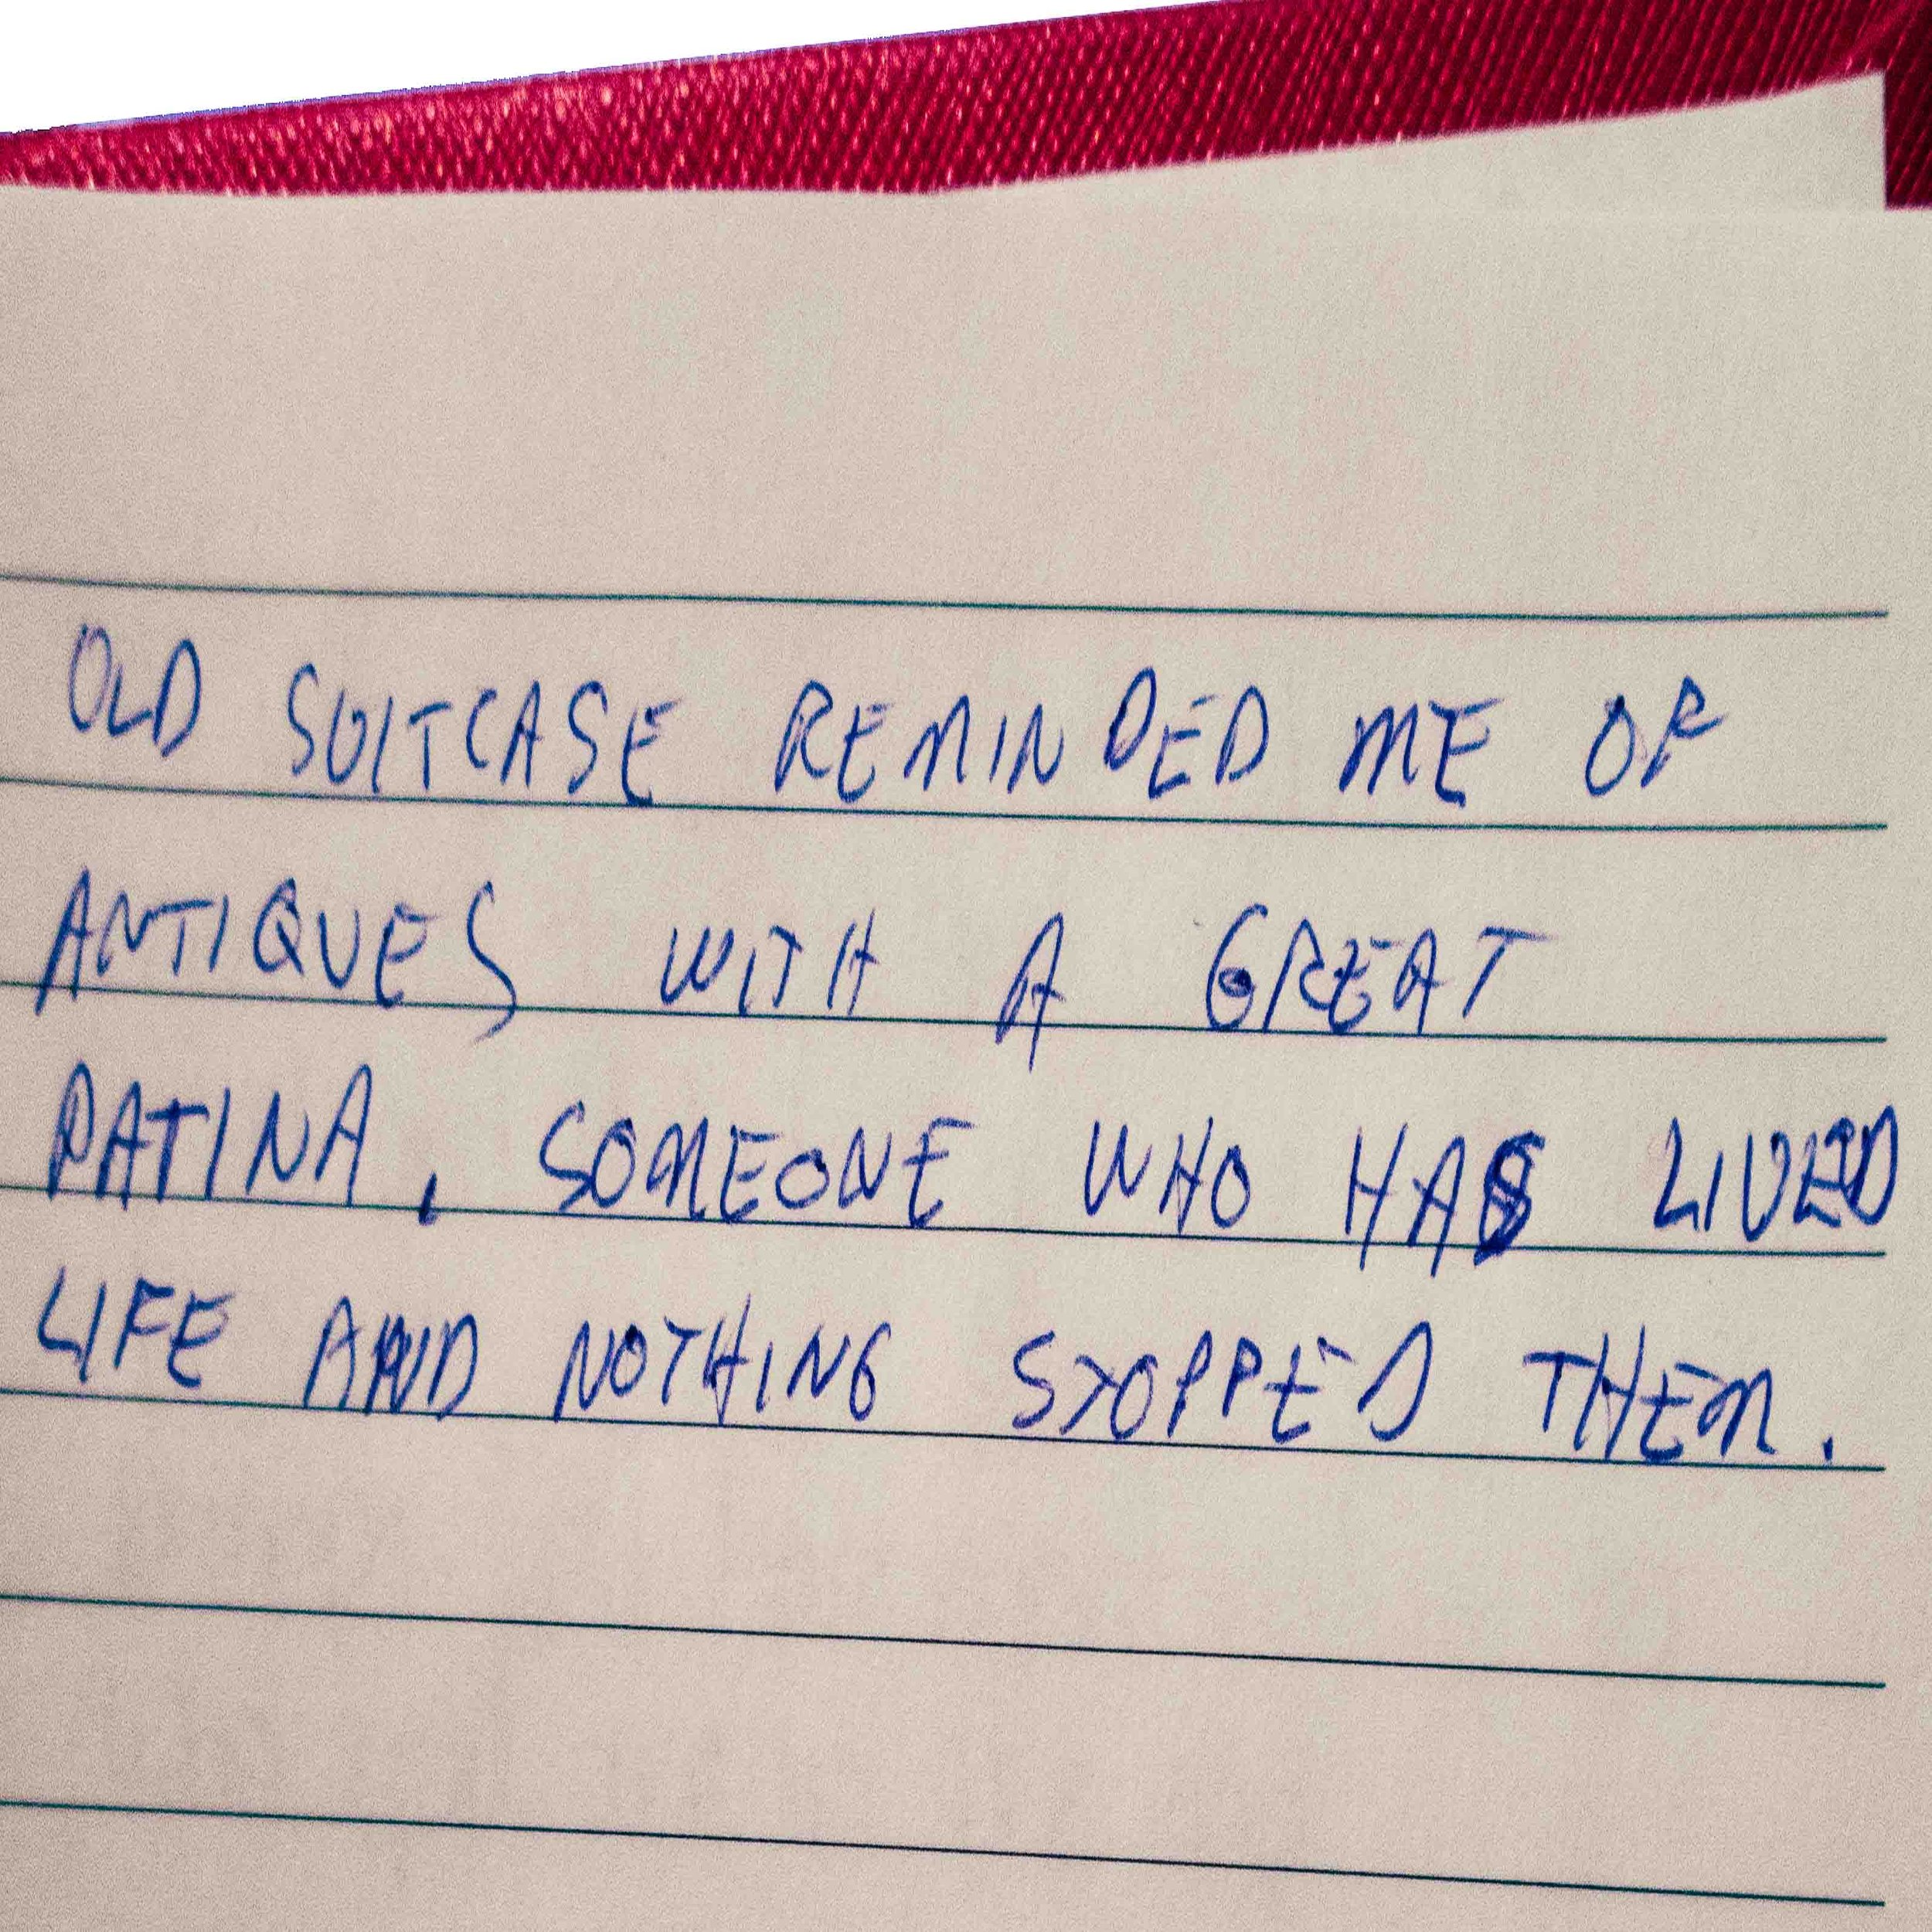 OLD SUITCASE REMINDED ME OF
ANTIQUES WITH A GREAT
PATINA, SOMEONE WHO HAS LIVED
LIFE AND NOTHING STOPPED THEM.